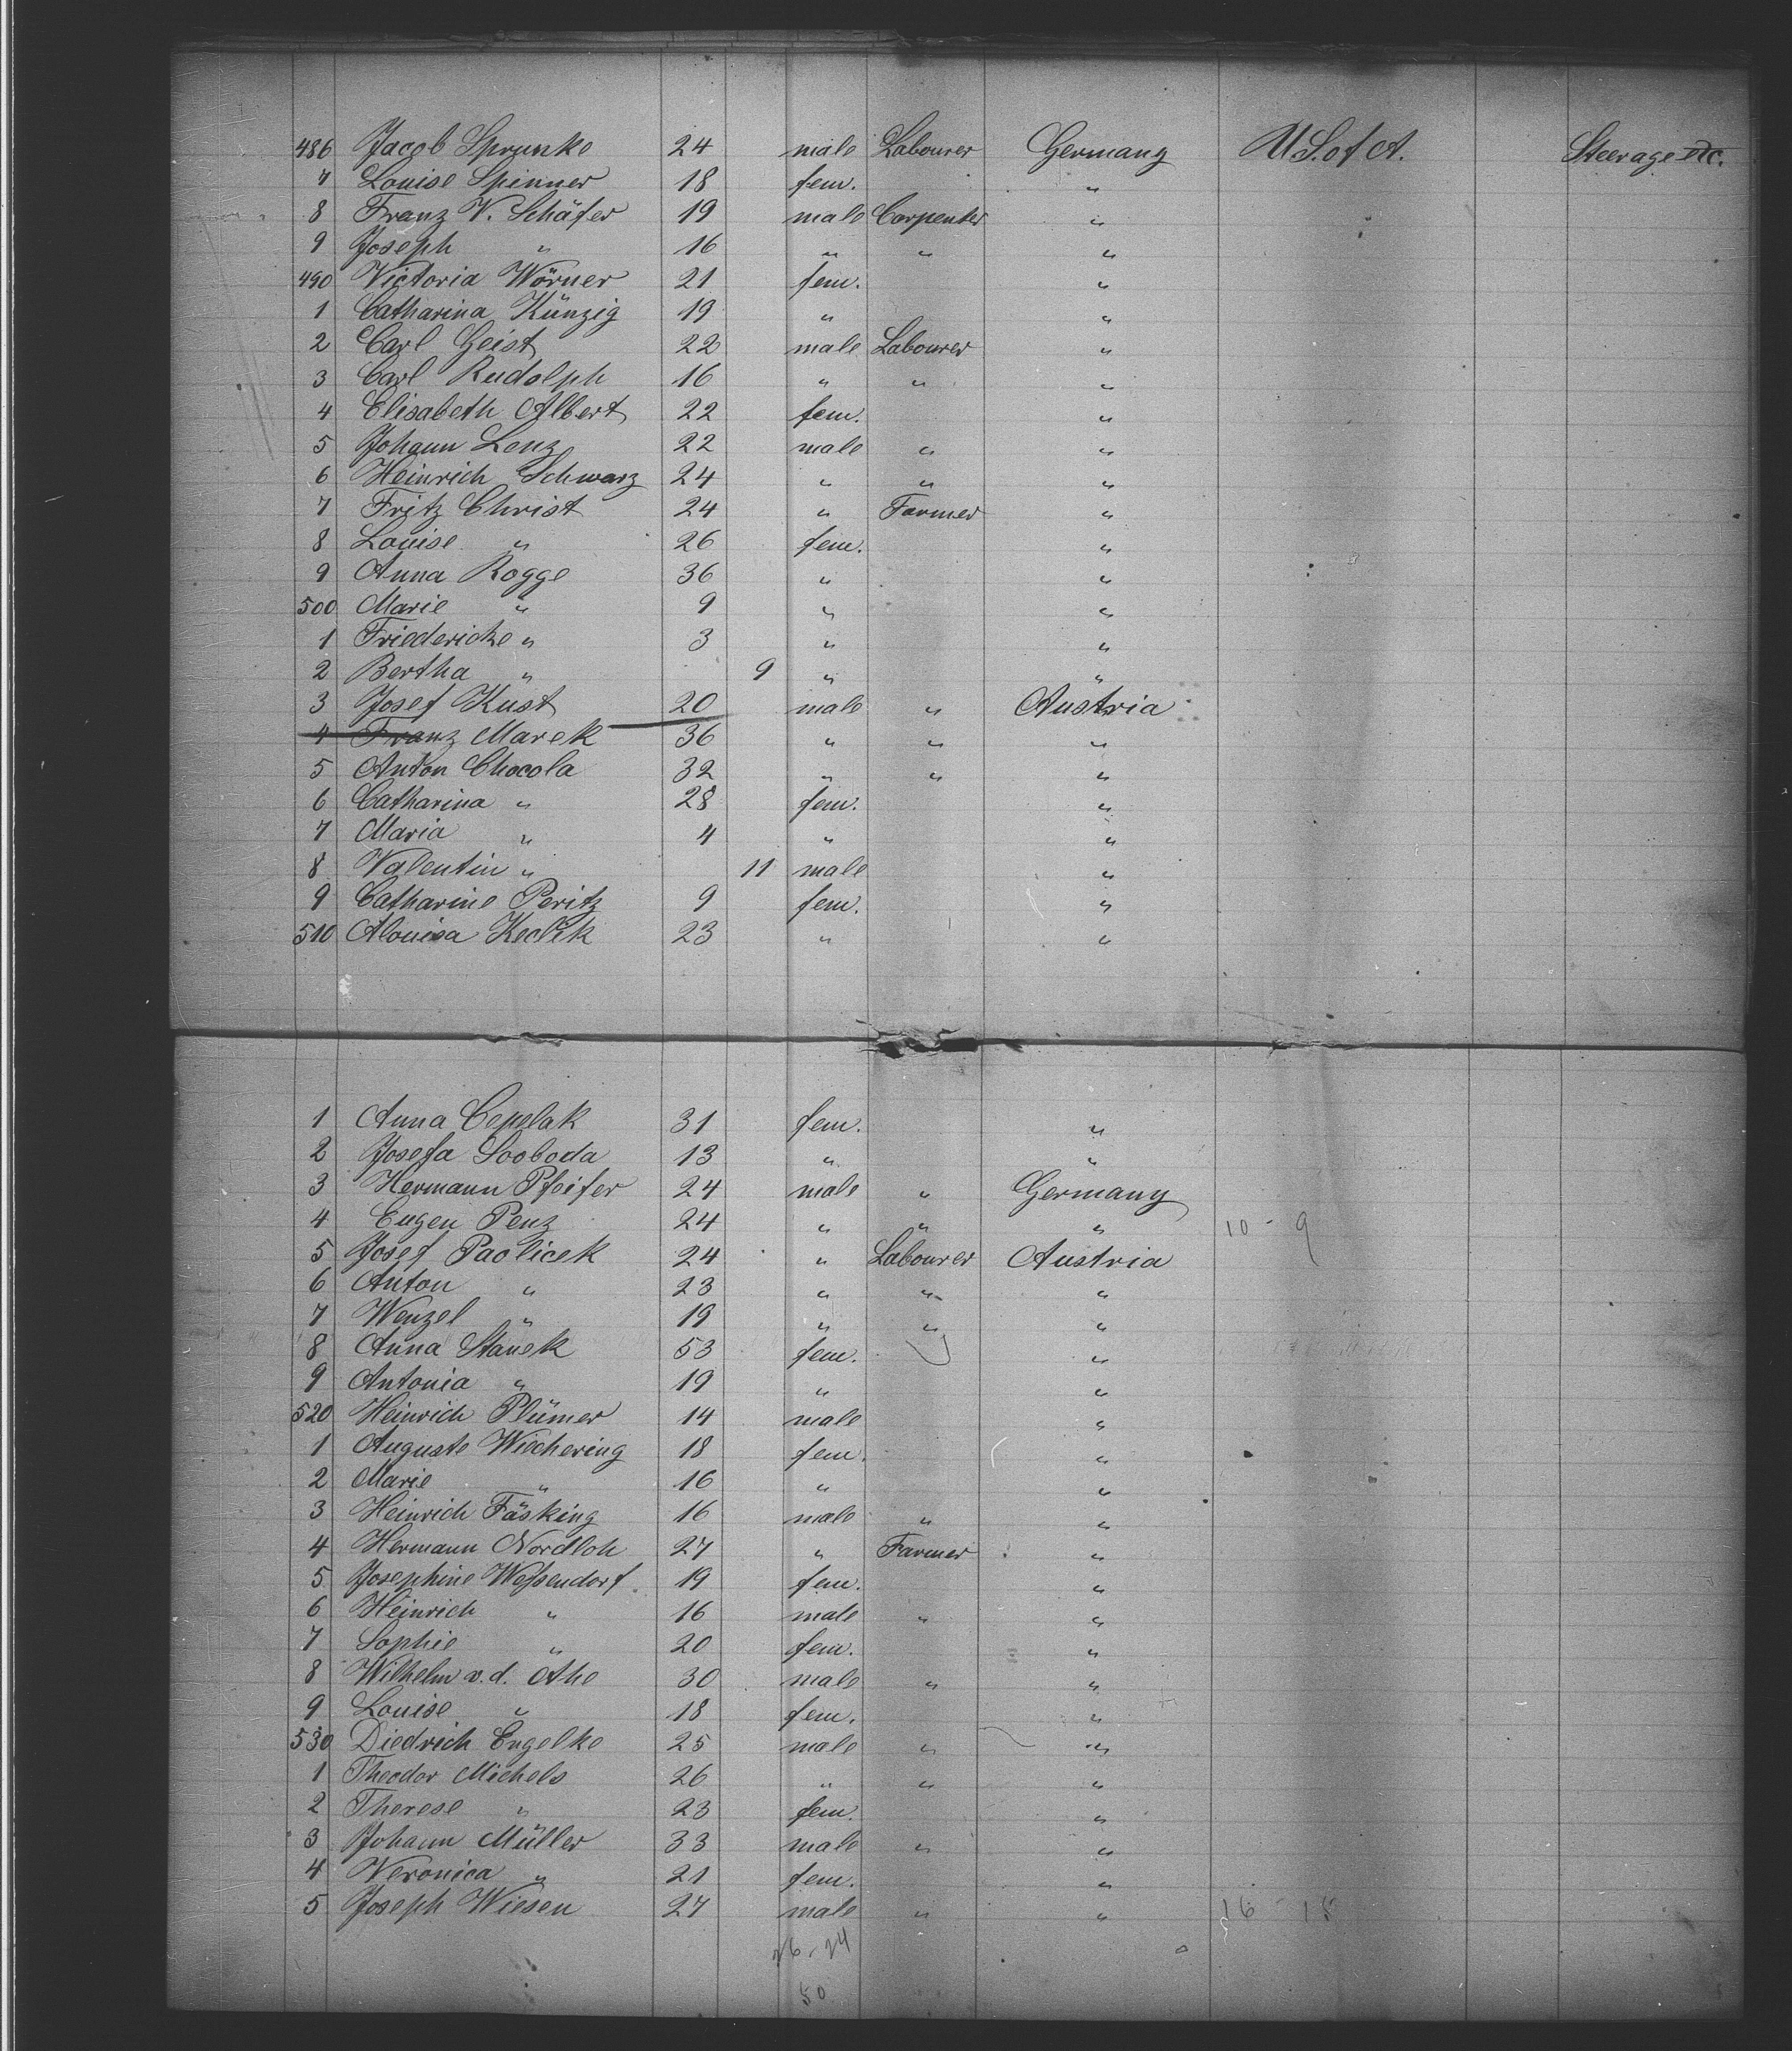 486 Jacob Sprunke 24 male Labourer Germany U S. of A. Steerage etc.
7 Louise Spinner 18 fem. "
8 Franz V. Schäfer 19 male Carpenter "
9 Joseph " 16 " " "
490 Victoria Wörner 21 fem. "
1 Catharina Künzig 19 " "
2 Carl Geist 22 male Labourer "
3 Carl Rudolph 16 " " "
4 Elisabeth Albert 22 fem. "
5 Johann Lenz 22 male " "
6 Heinrich Schwarz 24 " " "
7 Fritz Christ 24 " Farmer "
8 Louise " 26 fem. "
9 Anna Rogge 36 " "
500 Marie " 9 " "
1 Friedericke " 3 " "
2 Bertha " 9 " "
3 Josef Kust 20 male " Austria
4 Franz Marek 36 " " "
5 Anton Chocola 32 " " "
6 Catharina " 28 fem. "
7 Maria " 4 " "
8 Valentin " 11 male "
9 Catharine Peritz 9 fem. "
510 Alouisa Keclik 23 " "
1 Anna Cepelak 31 fem. "
2 Josefa Sooboda 13 " "
3 Hermann Pfeifer 24 male " Germany
4 Eugen Penz 24 " " " 10 - 9
5 Josef Paolicek 24 " Labourer Austria
6 Anton " 23 " " "
7 Wenzel " 19 " " "
8 Anna Stanek 53 fem. "
9 Antonia " 19 " "
520 Heinrich Plümer 14 male "
1 Auguste Wiechering 18 fem. "
2 Marie " 16 " "
3 Heinrich Fäsking 16 male " "
4 Hermann Nordloh 27 " Farmer "
5 Josephine Weßendorf 19 fem. "
6 Heinrich " 16 male " "
7 Sophie " 20 fem. "
8 Wilhelm v. d. Ahe 30 male " "
9 Louise " 18 fem. "
530 Diedrich Engelke 25 male " "
1 Theodor Michels 26 " " "
2 Therese " 23 fem. "
3 Johann Müller 33 male " "
4 Veronica " 21 fem. "
5 Joseph Wiesen 27 male " " 16 18
26 - 24
50